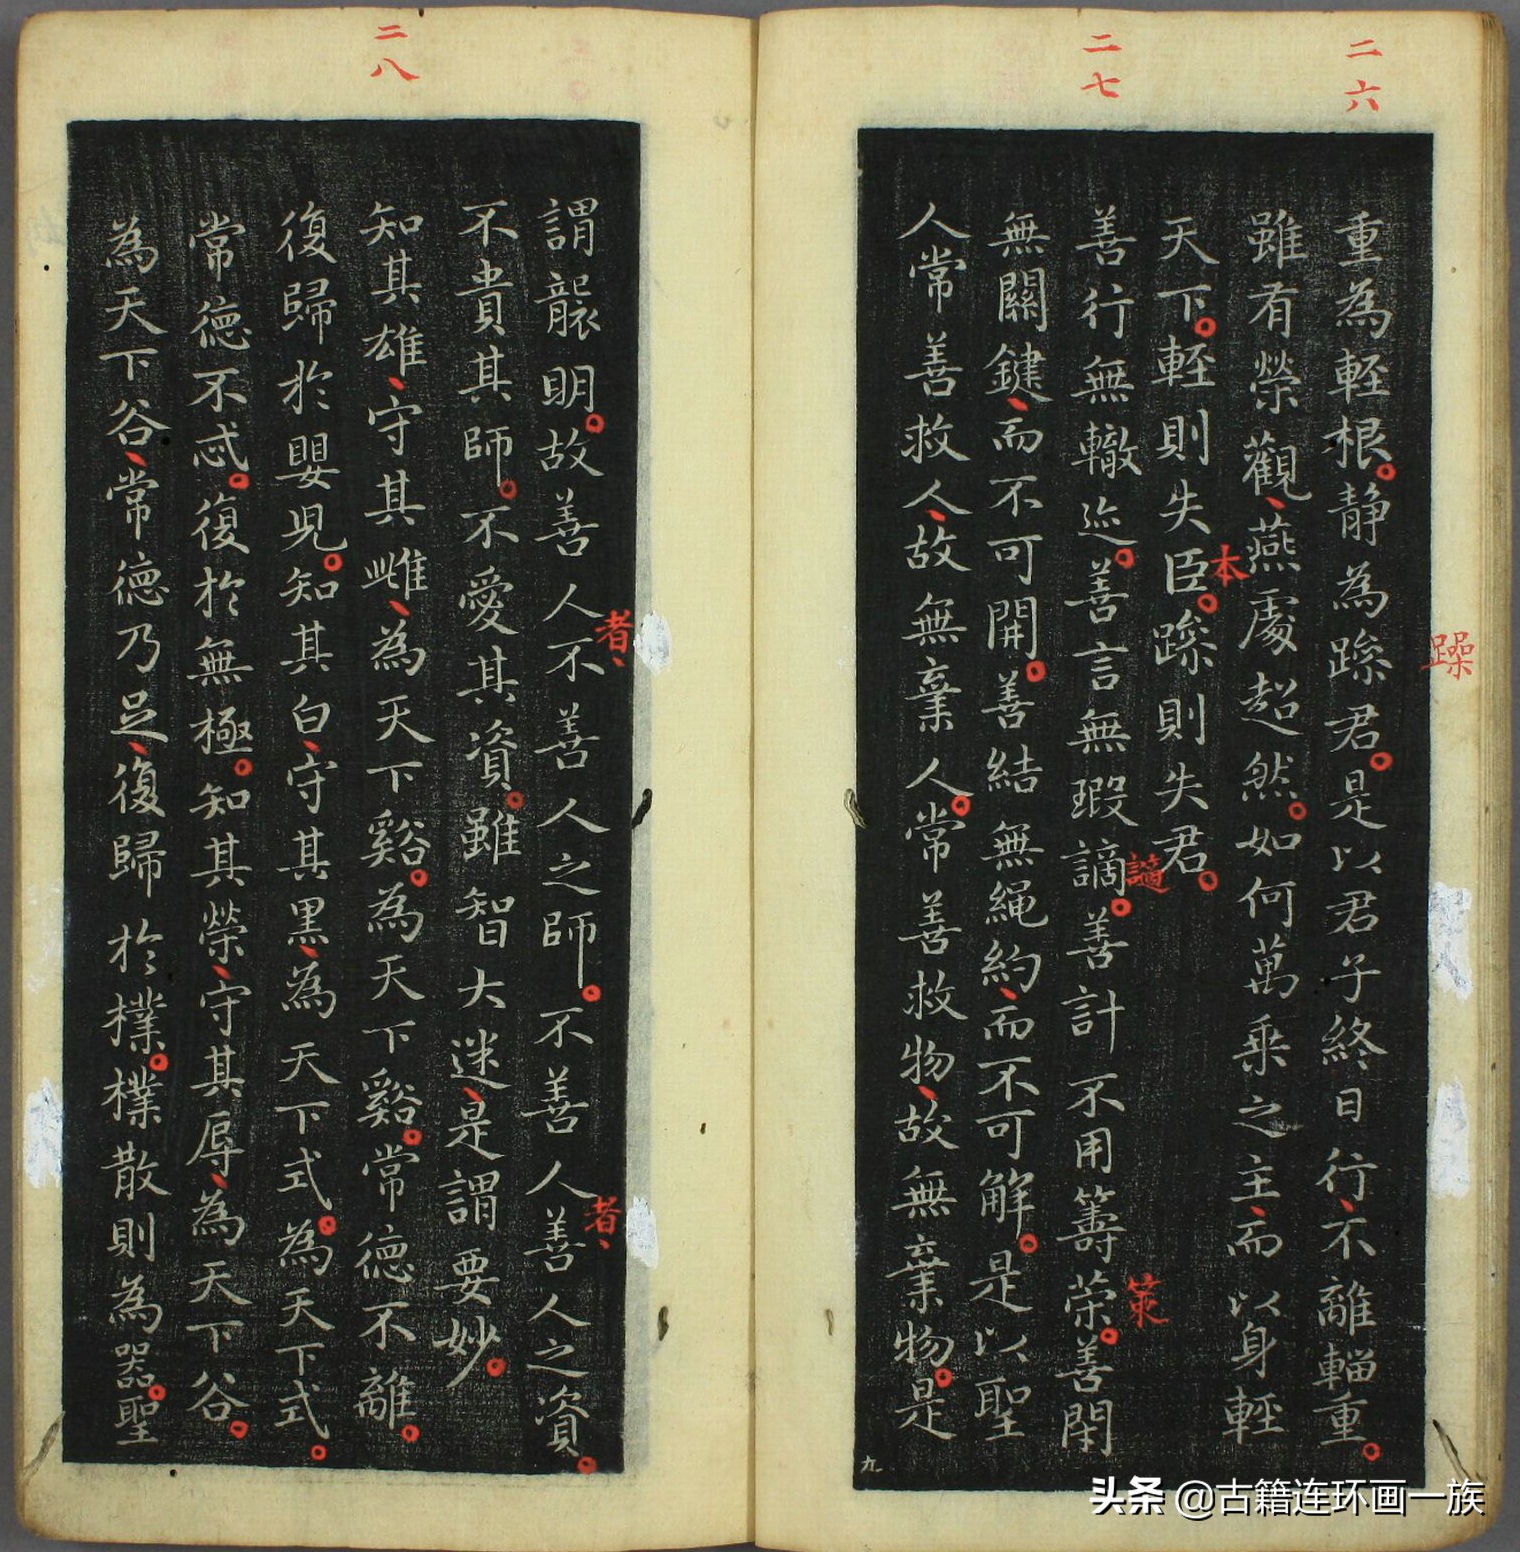 二六
二七
重為輕根。静為躁君。是以君子終日行、不離輜重。
躁
雖有榮觀、燕處超然。如何萬乘之主、而以身輕
天下。輕則失臣。躁則失君。
本
善行無轍迹。善言無瑕謫。善計不用籌䇿。善閉
謫
策
無關鍵、而不可開。善結無繩約、而不可解。是以聖
人常善救人、故無棄人。常善救物、故無棄物。是
九
二八
謂襲明。故善人不善人之師。不善人善人之資。
者、
者、
不貴其師。不愛其資。雖智大迷、是謂要妙。
知其雄、守其雌、為天下谿。為天下谿。常德不離。
復歸於嬰兒。知其白、守其黑、為天下式。為天下式。
常德不忒。復於無極。知其榮、守其辱、為天下谷。
為天下谷、常德乃足、復歸於樸。樸散則為器。聖
头条 @古籍连环画一族